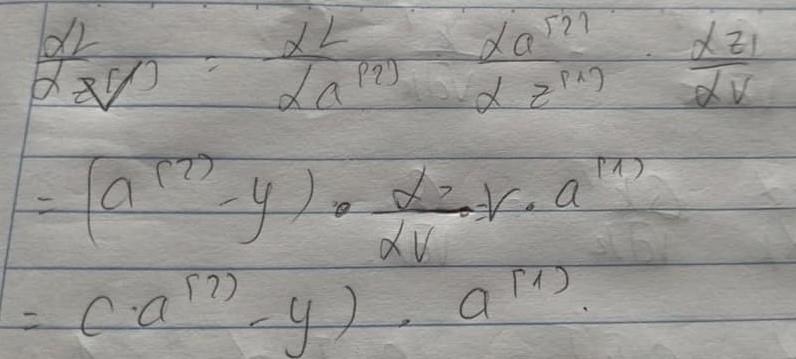 dL/dz^[1] = dL/da^[2] · da^[2]/dz^[1] · dz1/dV
= (a^[2] - y) · d/dV = V · a^[1]
= (·a^[2] - y) · a^[1].